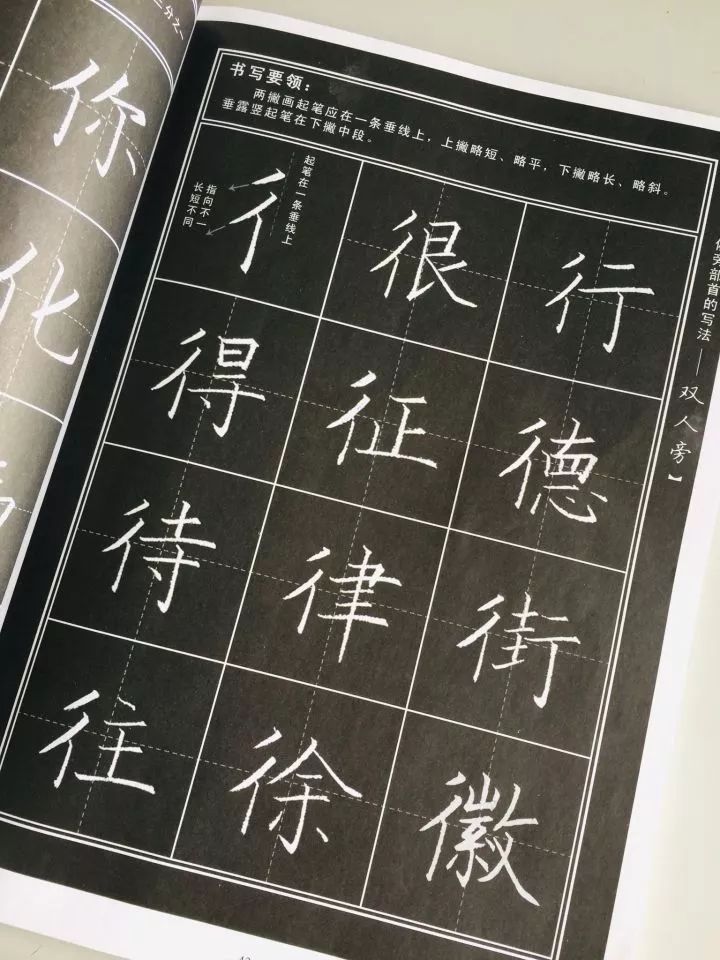 二分之
你
化
书写要领：
两撇画起笔应在一条垂线上，上撇略短、略平，下撇略长、略斜。
垂露竖起笔在下撇中段。
彳
起笔在一条垂线上
指向不一
长短不同
很 行
得 征 德
待 律 街
往 徐 徽
旁部首的写法——双人旁】